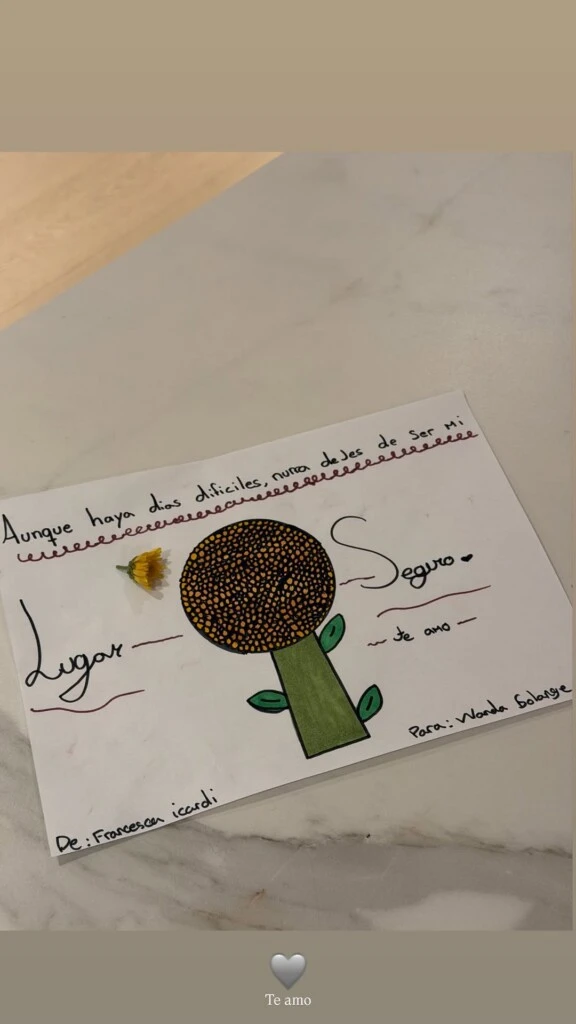 Aunque haya dias dificiles, nunca dejes de ser mi
Lugar
Seguro
te amo
De: Francesca icardi
Para: Wanda Solange
Te amo